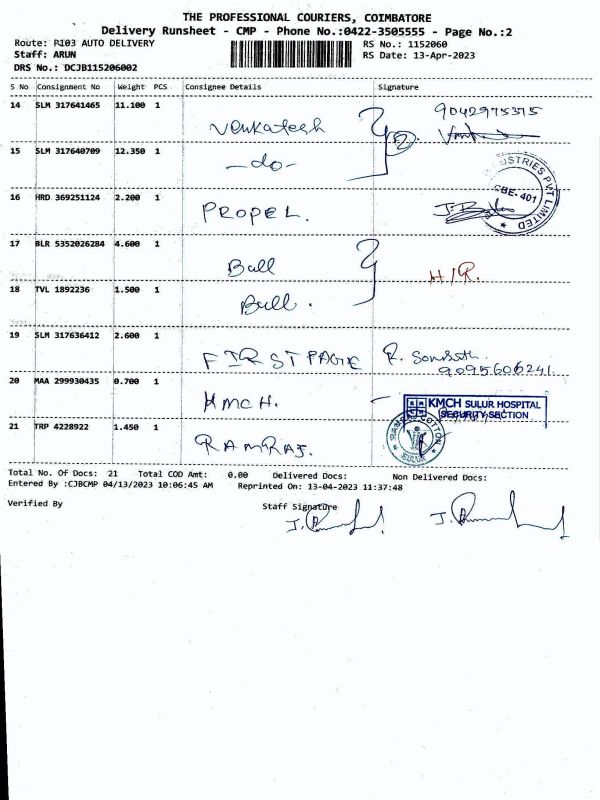 THE PROFESSIONAL COURIERS, COIMBATORE
Delivery Runsheet - CMP - Phone No.:0422-3505555 - Page No.:2
Route: R103 AUTO DELIVERY
Staff: ARUN
DRS No.: DCJB115206002
RS No.: 1152060
RS Date: 13-Apr-2023
S No Consignment No Weight PCS Consignee Details Signature
14 SLM 317641465 11.100 1 Venkatesh 9042975375
15 SLM 317640709 12.350 1 -do- 2
16 HRD 369251124 2.200 1 PROPEL.
USTRIES PVT LIMITED
CBE-401
17 BLR 5352026284 4.600 1 Ball H/R.
18 TVL 1892236 1.500 1 Ball.
19 SLM 317636412 2.600 1 FIRSTPAGE R.
9095606241
20 MAA 299930435 0.700 1 KMCH.
KMCH SULUR HOSPITAL
SECURITY SECTION
21 TRP 4228922 1.450 1 RAMRAJ.
COTTON
SULUR
Total No. Of Docs: 21 Total COD Amt: 0.00 Delivered Docs: Non Delivered Docs:
Entered By :CJBCMP 04/13/2023 10:06:45 AM Reprinted On: 13-04-2023 11:37:48
Verified By Staff Signature